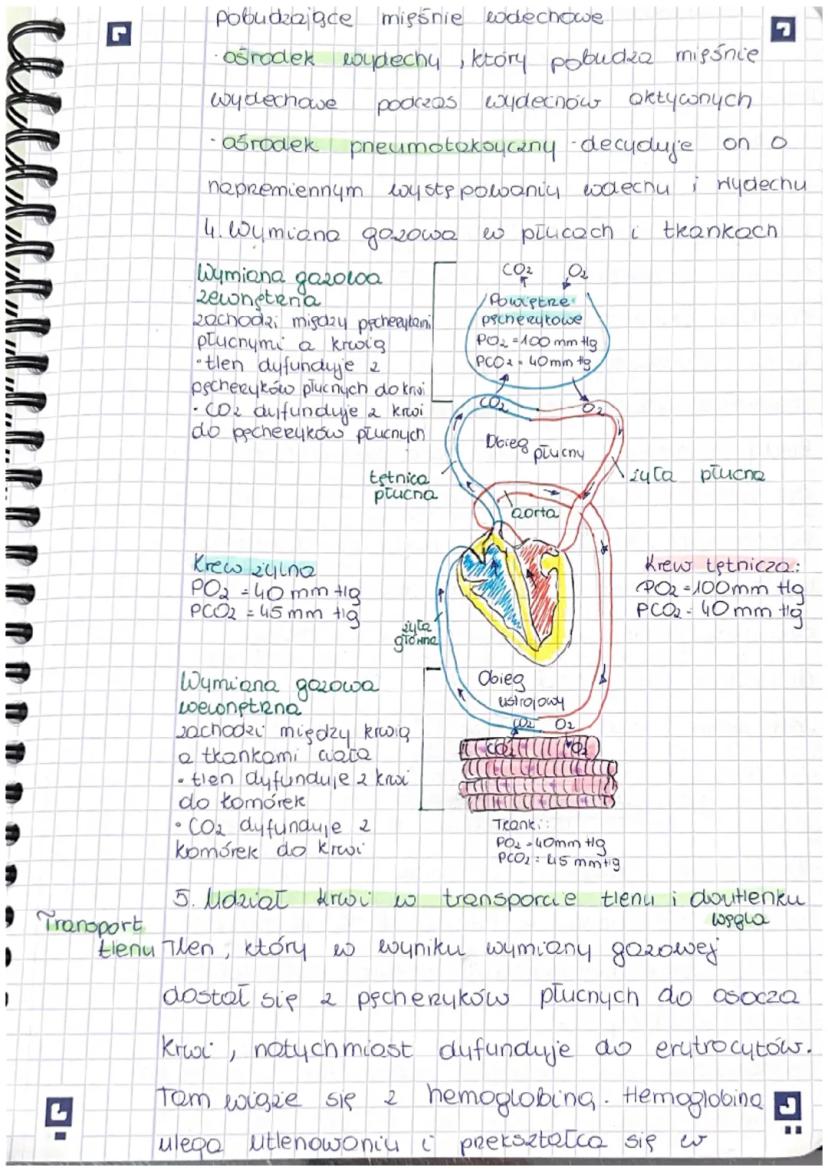 pobudzające mięśnie wdechowe
· ośrodek wydechu, który pobudza mięśnie
wydechowe podczas wydechów aktywnych
· ośrodek pneumotaksyczny - decyduje on o
naprzemiennym występowaniu wdechu i wydechu
4. Wymiana gazowa w płucach i tkankach
Wymiana gazowa
zewnętrzna
zachodzi między pęcherzykami
płucnymi a krwią
• tlen dyfunduje z
pęcherzyków płucnych do krwi
• CO2 dyfunduje z krwi
do pęcherzyków płucnych
CO2 O2
Powietrze
pęcherzykowe
PO2 = 100 mm Hg
PCO2 = 40 mm Hg
CO2 O2
Obieg płucny
tętnica
płucna
żyła płucna
aorta
Krew żylna
PO2 = 40 mm Hg
PCO2 = 45 mm Hg
Krew tętnicza:
PO2 = 100 mm Hg
PCO2 = 40 mm Hg
żyła
główna
Wymiana gazowa
wewnętrzna
zachodzi między krwią
a tkankami ciała
• tlen dyfunduje z krwi
do komórek
• CO2 dyfunduje z
komórek do krwi
Obieg
ustrojowy
CO2 O2
CO2 O2
Tkanki:
PO2 = 40 mm Hg
PCO2 = 45 mm Hg
5. Udział krwi w transporcie tlenu i dwutlenku
węgla
Transport
tlenu
Tlen, który w wyniku wymiany gazowej
dostał się z pęcherzyków płucnych do osocza
krwi, natychmiast dyfunduje do erytrocytów.
Tam wiąże się z hemoglobiną. Hemoglobina
ulega utlenowaniu i przekształca się w